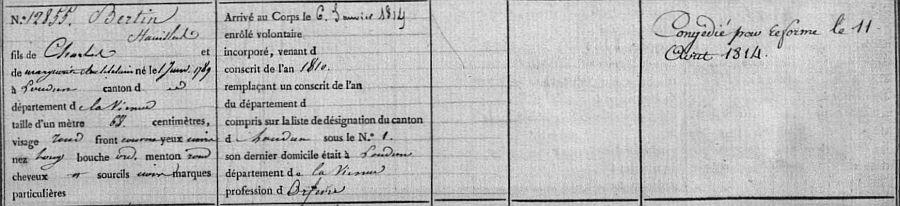 N.° 12855. Bertin
fils de Charles et
de né le 1 Juin 1789
à Loudun canton d id
département d e la Vienne
taille d'un mètre 63. centimètres,
visage rond front couvert yeux noirs
nez long bouche ord. menton rond
cheveux et sourcils noirs marques
particulières
Arrivé au Corps le 6. Janvier 1814
enrôlé volontaire
incorporé, venant d
conscrit de l'an 1810.
remplaçant un conscrit de l'an
du département d
compris sur la liste de désignation du canton
d e Loudun sous le N.° 1.
son dernier domicile était à Loudun
département d e la Vienne
profession d Orfèvre
Congédié pour réforme le 11
Avril 1814.